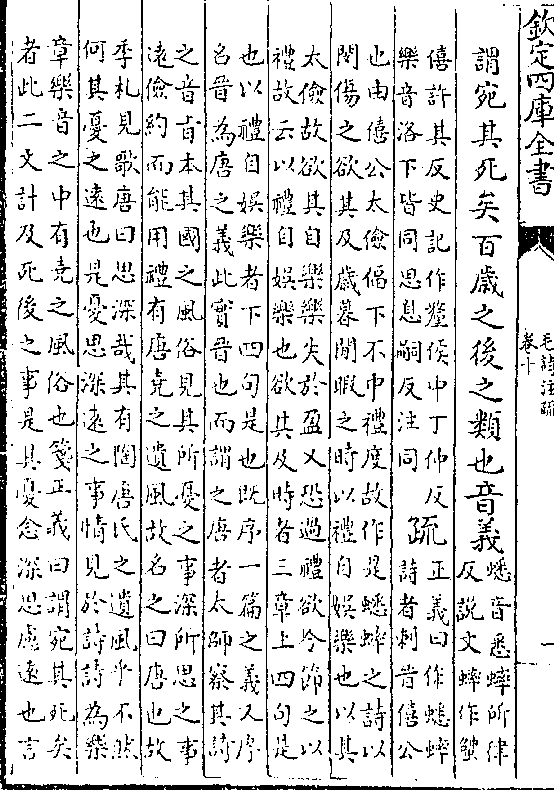 欽定四庫全書
毛詩注疏
卷十
一
謂宛其死矣百歲之後之類也音義
蟋音悉蟀所律
反説文蟀作
僖許其反史記作釐侯中丁仲反
樂音洛下皆同思息嗣反注同
疏
正義曰作蟋蟀
詩者刺晉僖公
也由僖公太儉偪下不中禮度故作是蟋蟀之詩以
閔傷之欲其及歲暮閒暇之時以禮自娛樂也以其
太儉故欲其自樂樂失於盈又恐過禮欲令節之以
禮故云以禮自娛樂也欲其及時者三章上四句是
也以禮自娛樂者下四句是也既序一篇之義又序
名晉為唐之義此實晉也而謂之唐者太師察其詩
之音旨本其國之風俗見其所憂之事深所思之事
遠儉約而能用禮有唐堯之遺風故名之曰唐也故
季札見歌唐曰思深哉其有陶唐氏之遺風乎不然
何其憂之遠也是憂思深遠之事情見於詩詩為樂
章樂音之中有堯之風俗也箋正義曰謂宛其死矣
者此二文計及死後之事是其憂念深思慮遠也言